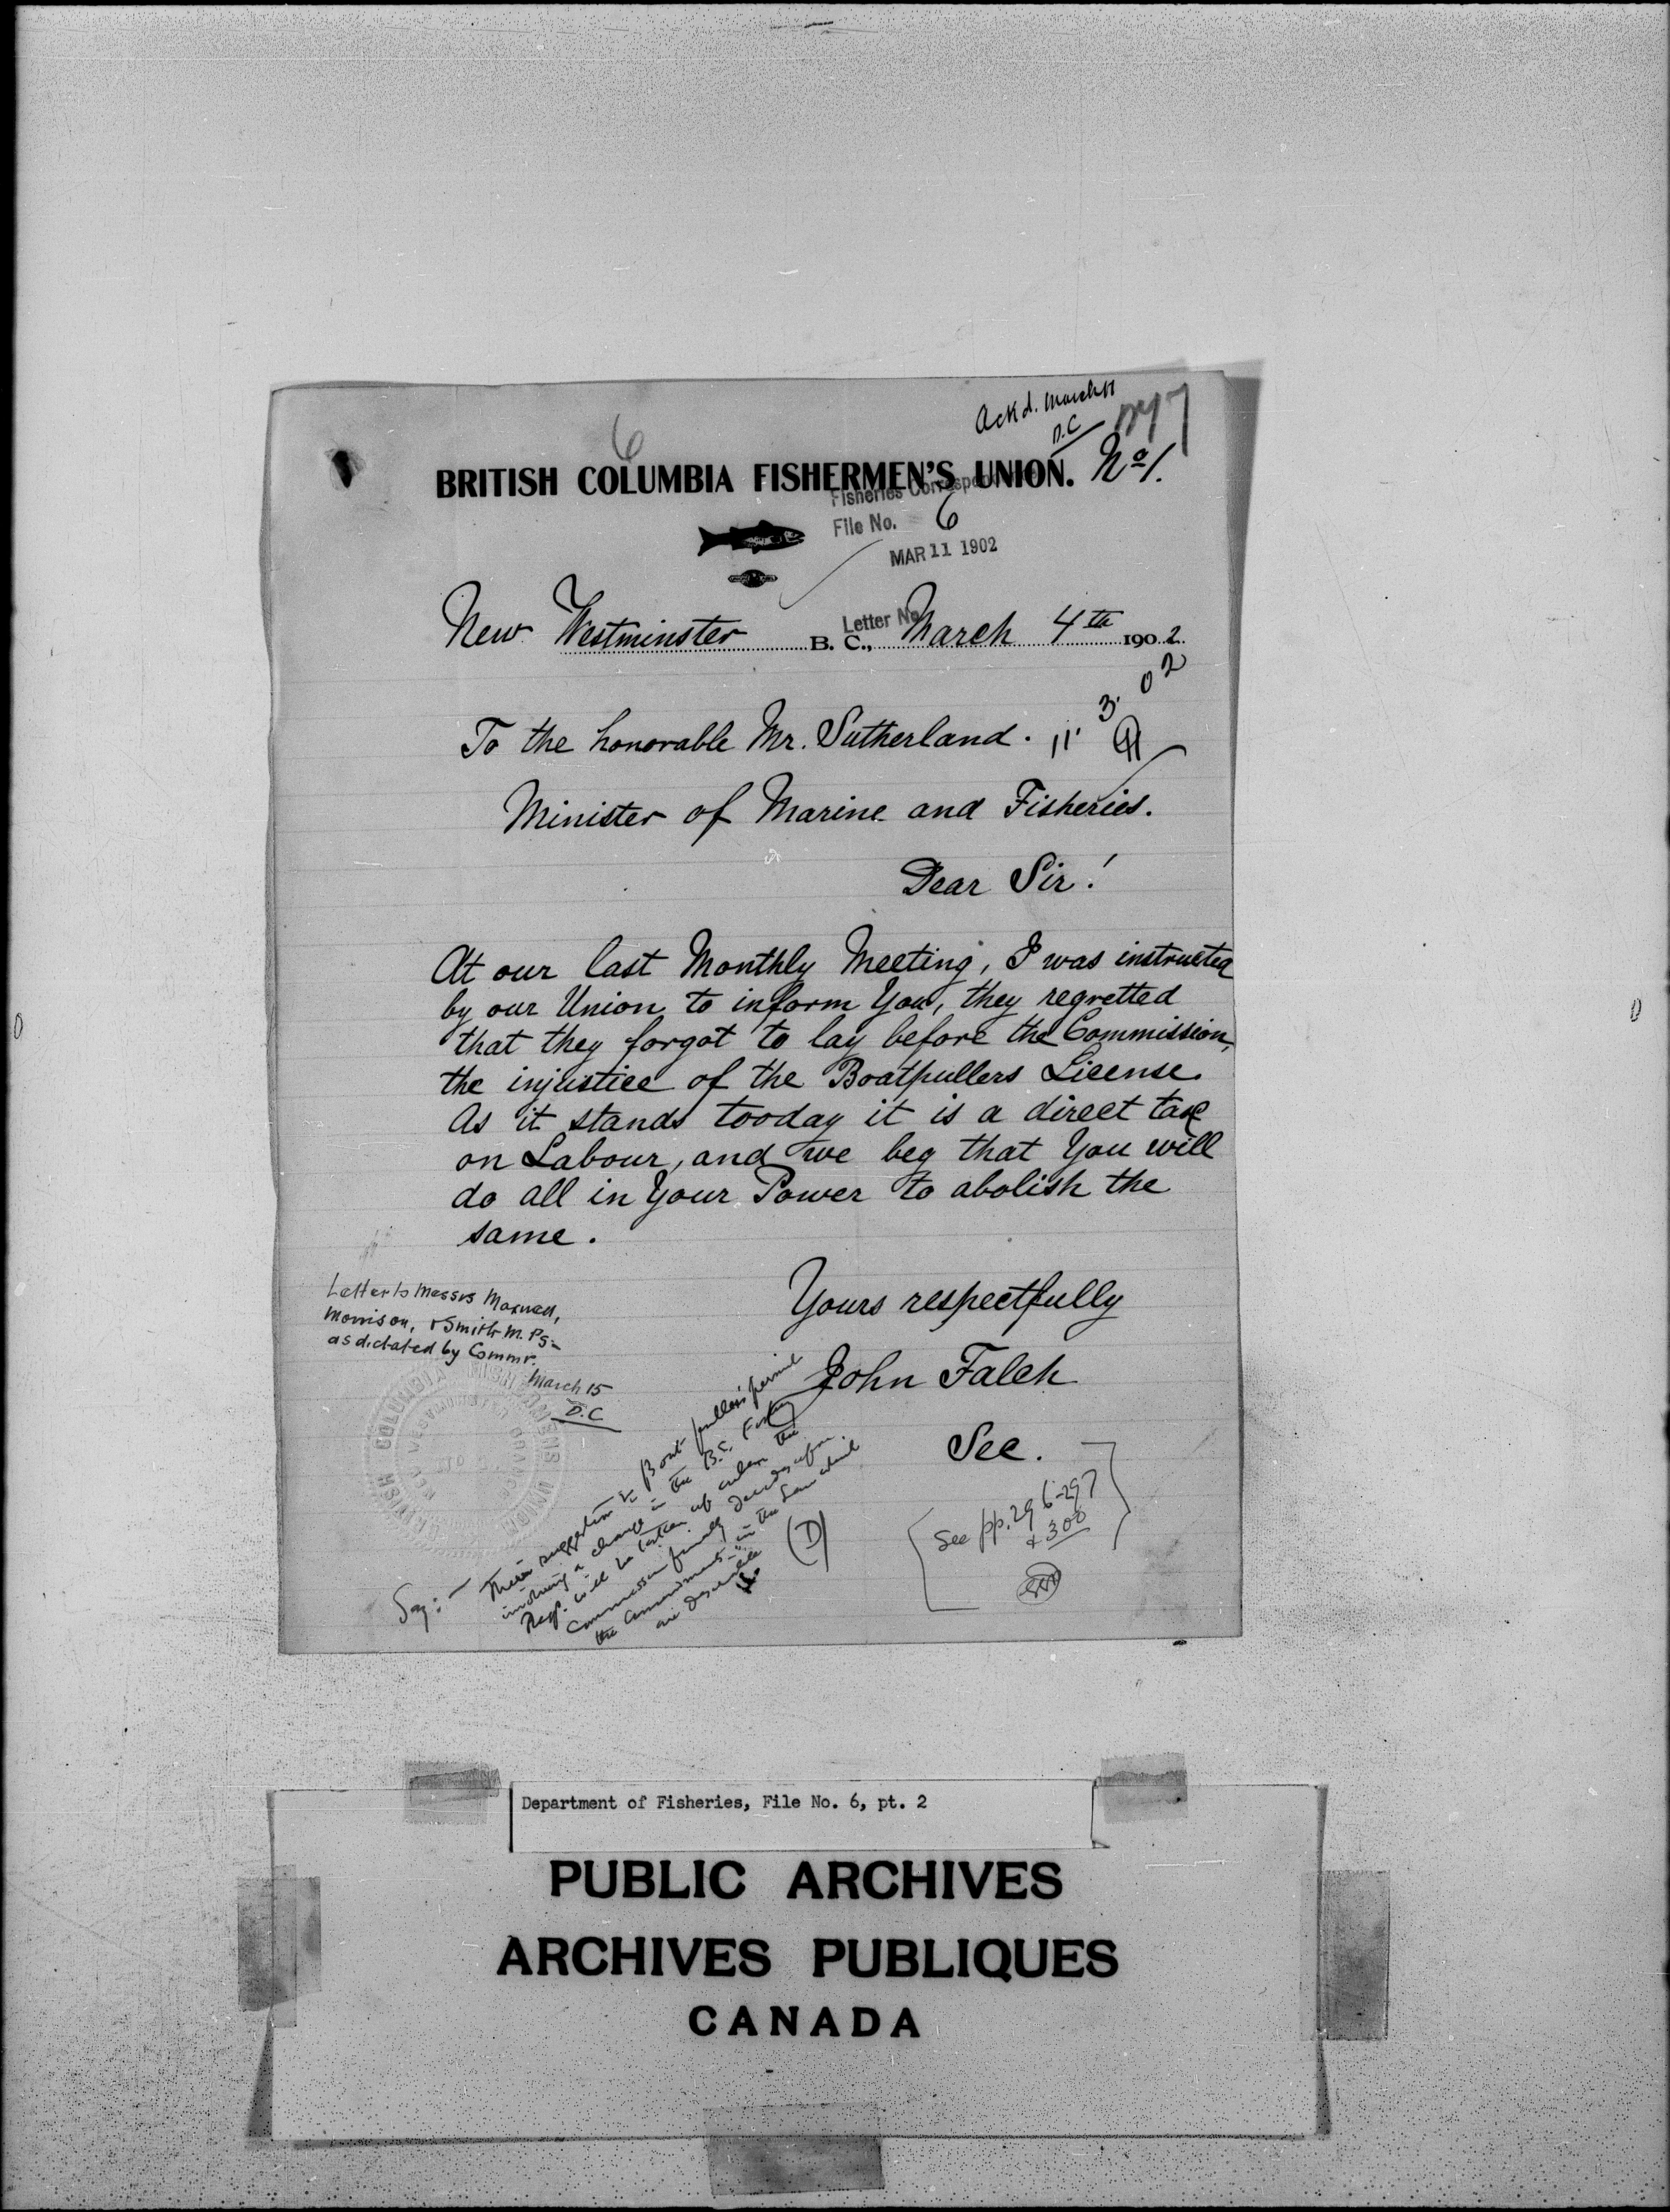 Ackd. March 11
D.C
6
BRITISH COLUMBIA FISHERMEN'S UNION. No 1.
Fisheries Correspon
File No. 6
MAR 11 1902
Letter No
New Westminster B. C., March 4th 1902.
11. 3. 02
To the honorable Mr. Sutherland.
Minister of Marine and Fisheries.
Dear Sir!
At our last Monthly Meeting, I was instructed
by our Union to inform You, they regretted
that they forgot to lay before the Commission,
the injustice of the Boatpullers License.
As it stands tooday it is a direct tax
on Labour, and we beg that You will
do all in Your Power to abolish the
same.
Yours respectfully
John Falck
Sec.
Letter to Messrs Maxwell,
Morrison, & Smith M. Ps-
as dictated by Commr.
March 15
D.C
COLUMBIA FISHERMENS UNION
NEW WESTMINSTER
Say:- Their suggestion re Boat puller's permit
involving a change in the B.C. Fishery
Regs. will be taken up when the
Commission finally decides upon
the amendments in the law which
are desirable
(D)
See pp. 296-297
+ 300
Department of Fisheries, File No. 6, pt. 2
PUBLIC ARCHIVES
ARCHIVES PUBLIQUES
CANADA